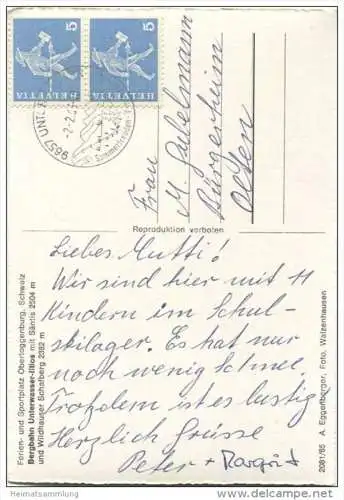 HELVETIA 5
HELVETIA 5
9657 UNT
-2.2.
Sommerfreuden
Frau
M. Gabelmann
Bürgerheim
Olten
Reproduktion verboten
Liebes Mutti!
Wir sind hier mit 11
Kindern im Schul-
skilager. Es hat nur
noch wenig Schnee.
Trotzdem ist es lustig
Herzlich Grüsse
Peter + Margrit
Ferien- und Sportplatz Obertoggenburg, Schweiz
Bergbahn Unterwasser-Iltios mit Säntis 2504 m
und Wildhauser Schafberg 2382 m
2081/65 A. Eggenberger, Foto, Walzenhausen
Heimatsammlung
delcampe.net